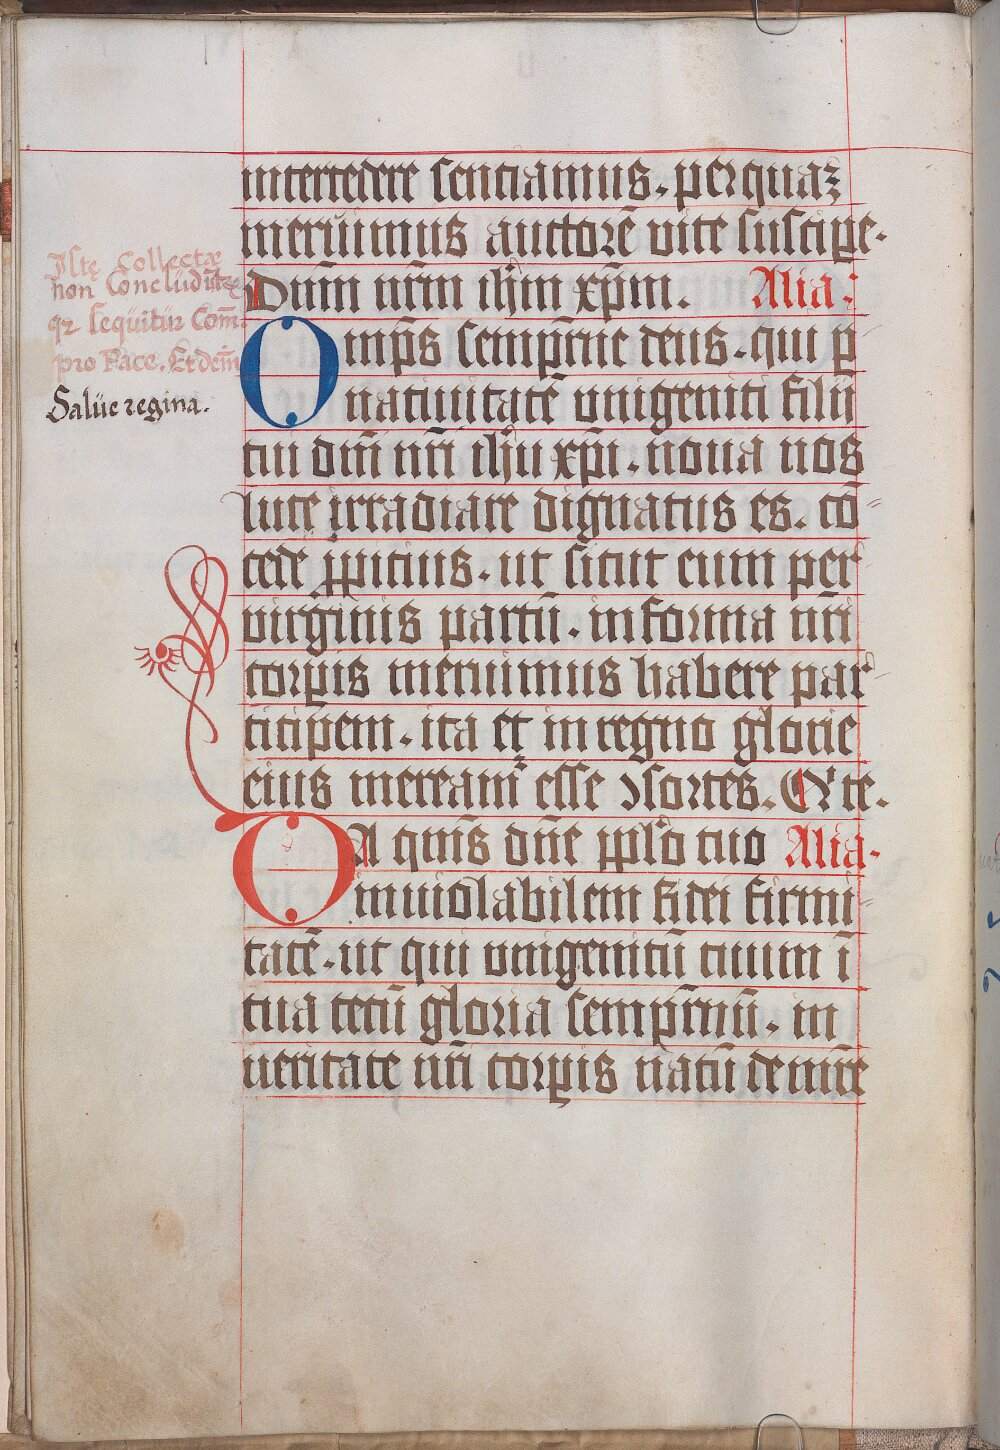 Iste Collectae
non Concluduntur
qz sequitur Com̄.
pro Pace. Et dem̄
Salue regina.
intercedere sentiamus. per quaz
meruimus auctorē vite suscipe.
Dn̄m nr̄m ih̄m xp̄m. Alia.
Omp̄s semp̄rne deus. qui ꝑ
natiuitatē vnigeniti filii
tui dn̄i nr̄i ih̄u xp̄i. noua nos
luce irradiare dignatus es. cō
cede ꝓpicius. ut sicut eum per
virginis partū. in forma nr̄i
corꝑis meruimus habere par
ticipem. ita et in regno glorie
eius meream̄ esse ꝯsortes. Qr te.
Da qum̄s dn̄e pplo tuo Alia.
inuiolabilem fidei firmi
tatē. ut qui vnigenitū tuum ī
tua tecū gloria semp̄rnū. in
ueritate nr̄i corꝑis natū de mr̄e